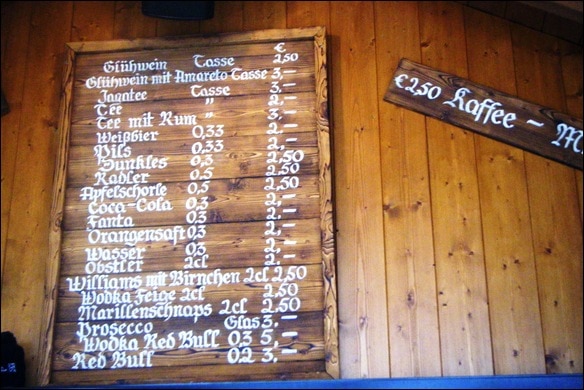 €
Glühwein Tasse 2,50
Glühwein mit Amareto Tasse 3,–
Jagatee Tasse 3,–
Tee " 2,–
Tee mit Rum " 3,–
Weißbier 0,33 2,–
Pils 0,33 2,–
Dunkles 0,3 2,50
Radler 0,5 2,50
Apfelschorle 0,5 2,50
Coca-Cola 0,3 2,–
Fanta 0,3 2,–
Orangensaft 0,3 2,–
Wasser 0,3 2,–
Obstler 2cl 2,–
Williams mit Birnchen 2cl 2,50
Wodka Feige 2cl 2,50
Marillenschnaps 2cl 2,50
Prosecco Glas 3,–
Wodka Red Bull 0,3 5,–
Red Bull 0,2 3,–
€ 2,50 Kaffee –